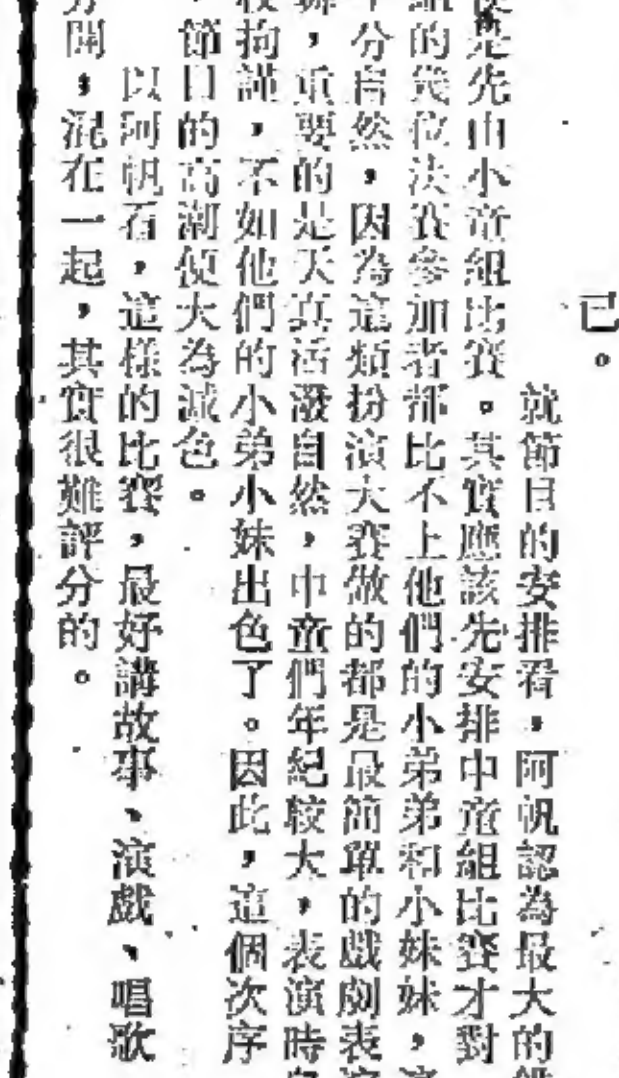 已。
就節目的安排看，阿帆認為最大的
是先由小童組比賽。其實應該先安排中童組比賽才對
的幾位決賽參加者都比不上他們的小弟弟和小妹妹，
分自然，因為這類扮演大賽做的都是最簡單的戲劇表
，重要的是天真活潑自然，中童們年紀較大，表演時
拘謹，不如他們的小弟小妹出色了。因此，這個次序
節目的高潮便大為減色。
以阿帆看，這樣的比賽，最好講故事、演戲、唱歌
開，混在一起，其實很難評分的。